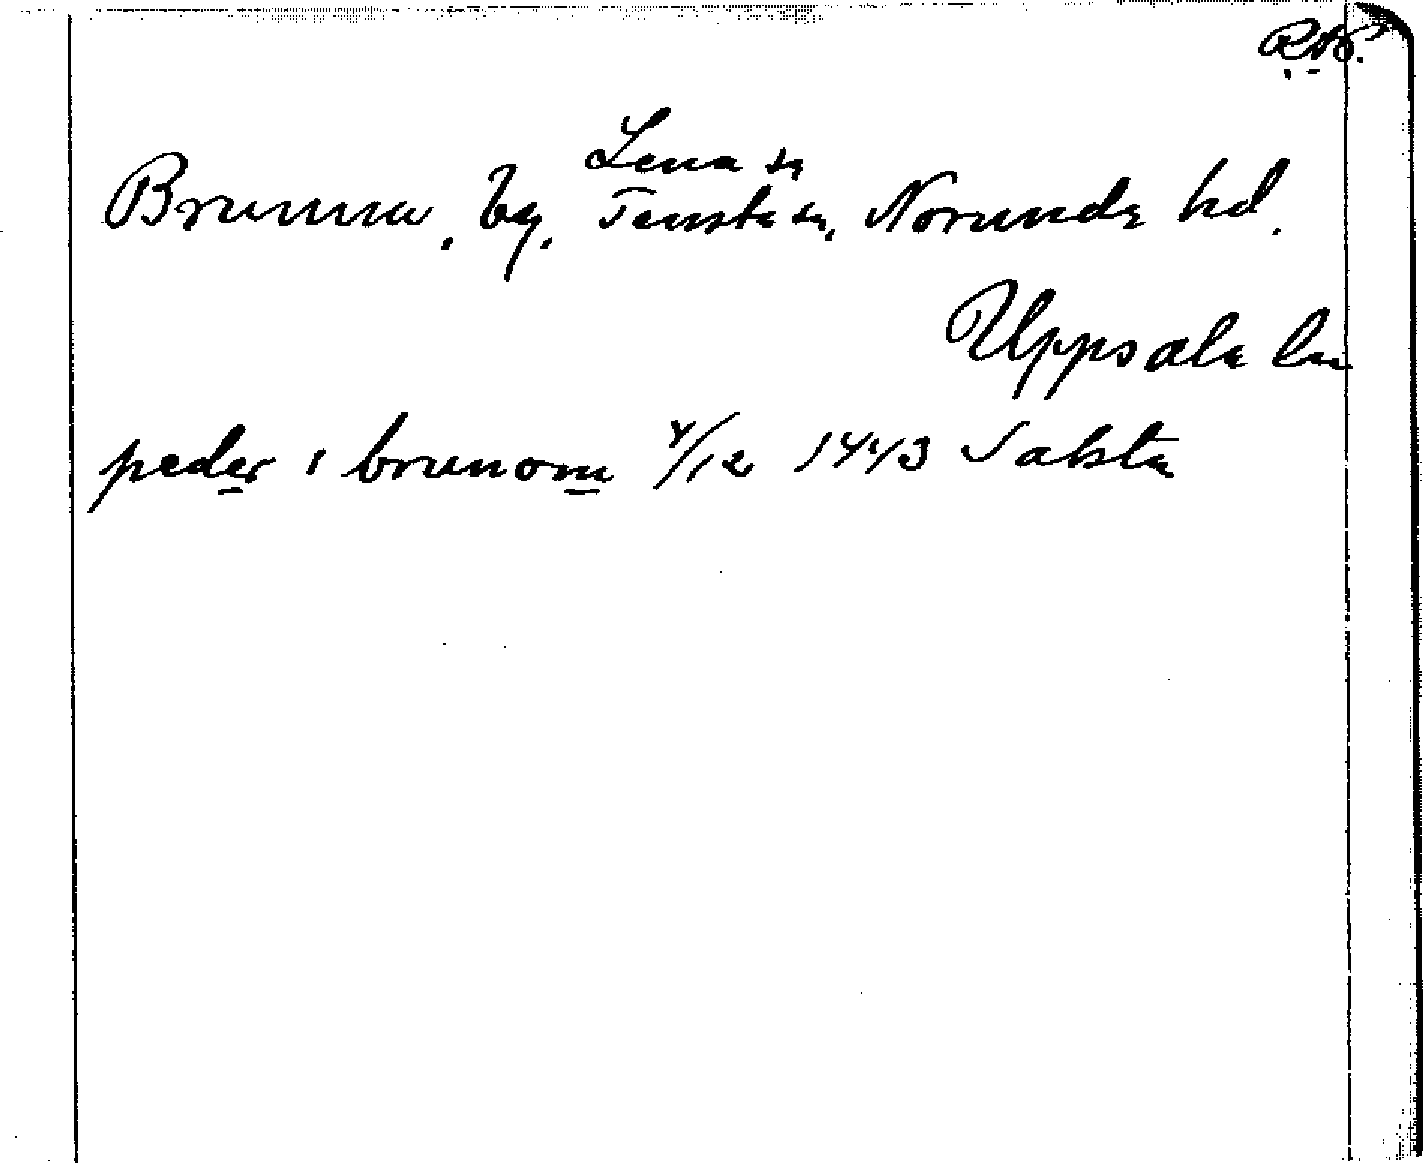 RAP.
Lena sn
Brunna, by. Tensta sn, Norunda hd.
Uppsala län
peder i brunom 4/12 1443 Salsta